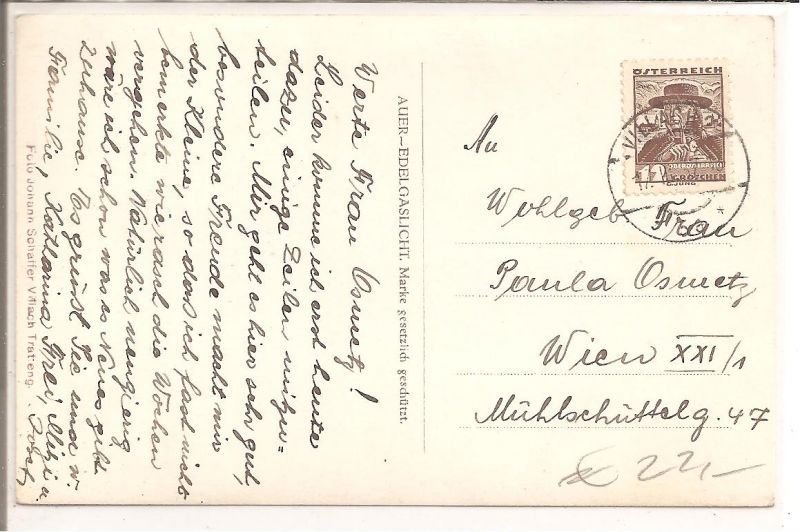 Werte Frau Osmetz!
Leider komme ich erst heute
dazu, einige Zeilen mitzu-
teilen. Mir geht es hier sehr gut,
besondere Freude macht mir
der Kleine, so dass ich fast nicht
bemerkte wie rasch die Wochen
vergehen. Natürlich neugierig
wäre ich schon was es Neues gibt
zuhause. Es grüsst Sie und w.
Familie, Katharina Frei, Mitzi u.
Foto Johann Schaffer Villach Tratteng.
AUER-EDELGASLICHT. Marke gesetzlich geschützt.
ÖSTERREICH
GROSCHEN
An
Wohlgeb
Frau
Paula Osmetz
Wien XXI/1
Mühlschüttelg. 47
22,-